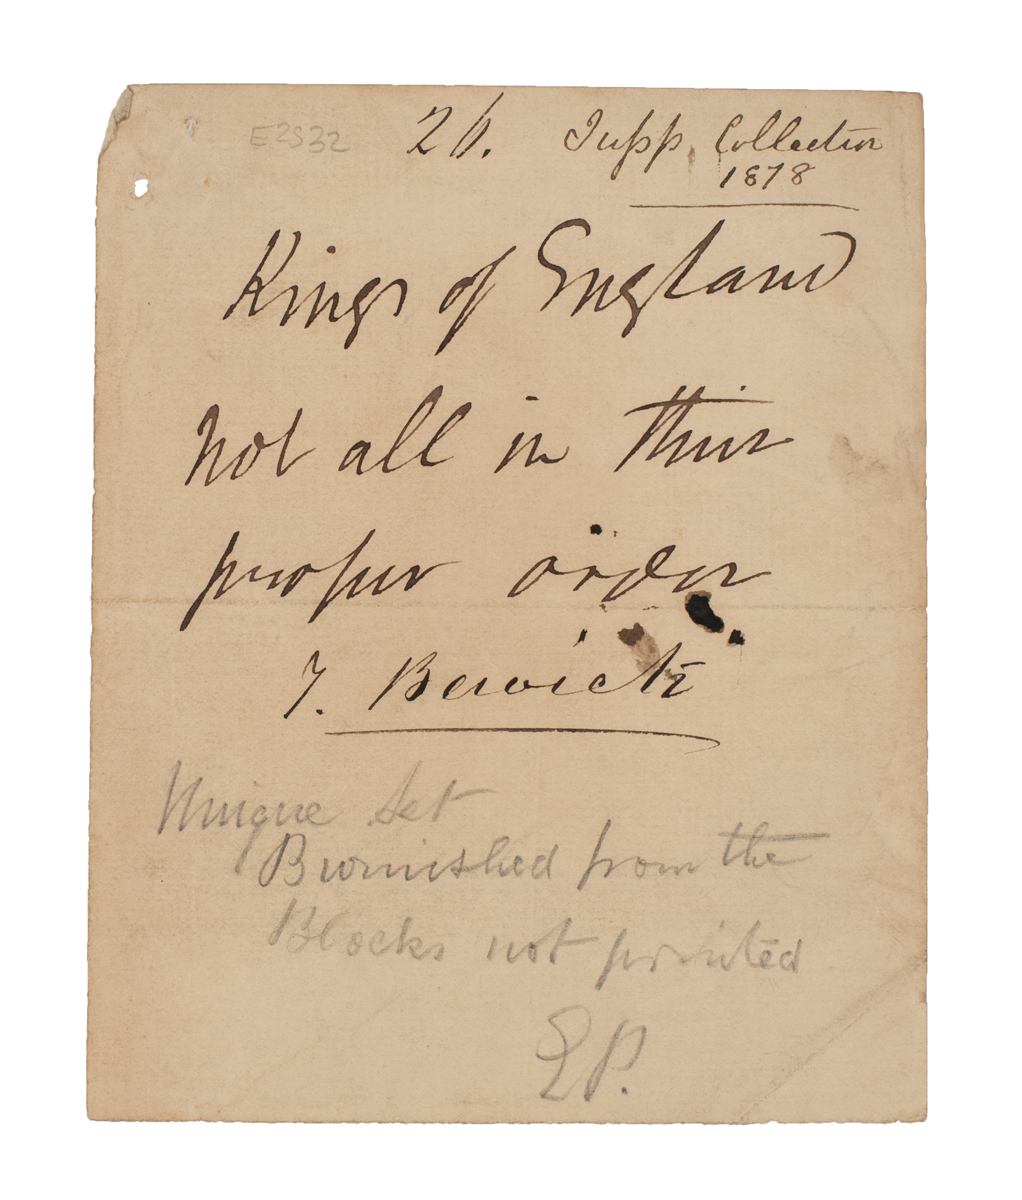 E2S32 26. Jupp. Collection
1878
Kings of England
not all in their
proper order
T. Bewick
Unique Set
Burnished from the
Blocks not printed
EP.